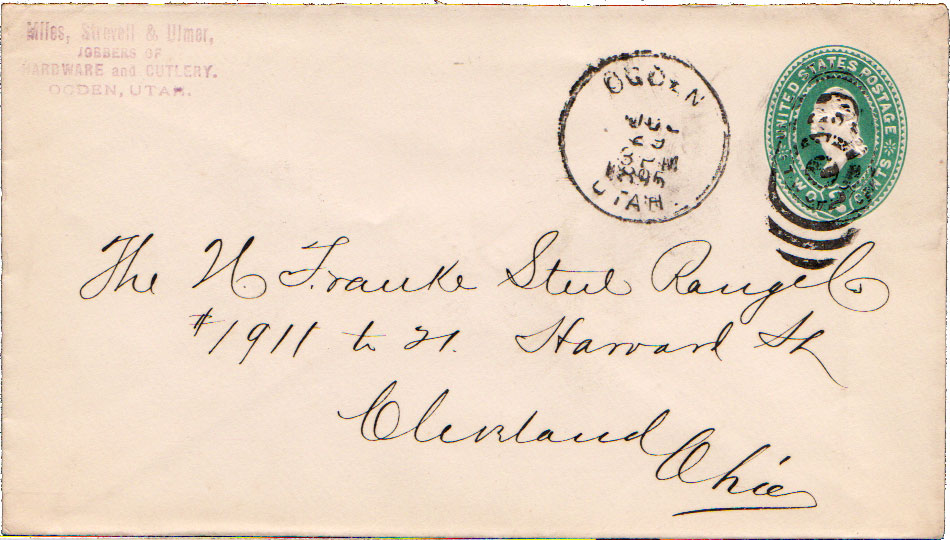 Miles, Strevell & Ulmer,
JOBBERS OF
HARDWARE and CUTLERY.
OGDEN, UTAH.
OGDEN
29
1895
UTAH
UNITED STATES POSTAGE
TWO CENTS
The H. Franke Steel Range Co
#1911 to 21. Harvard St
Cleveland
Ohio